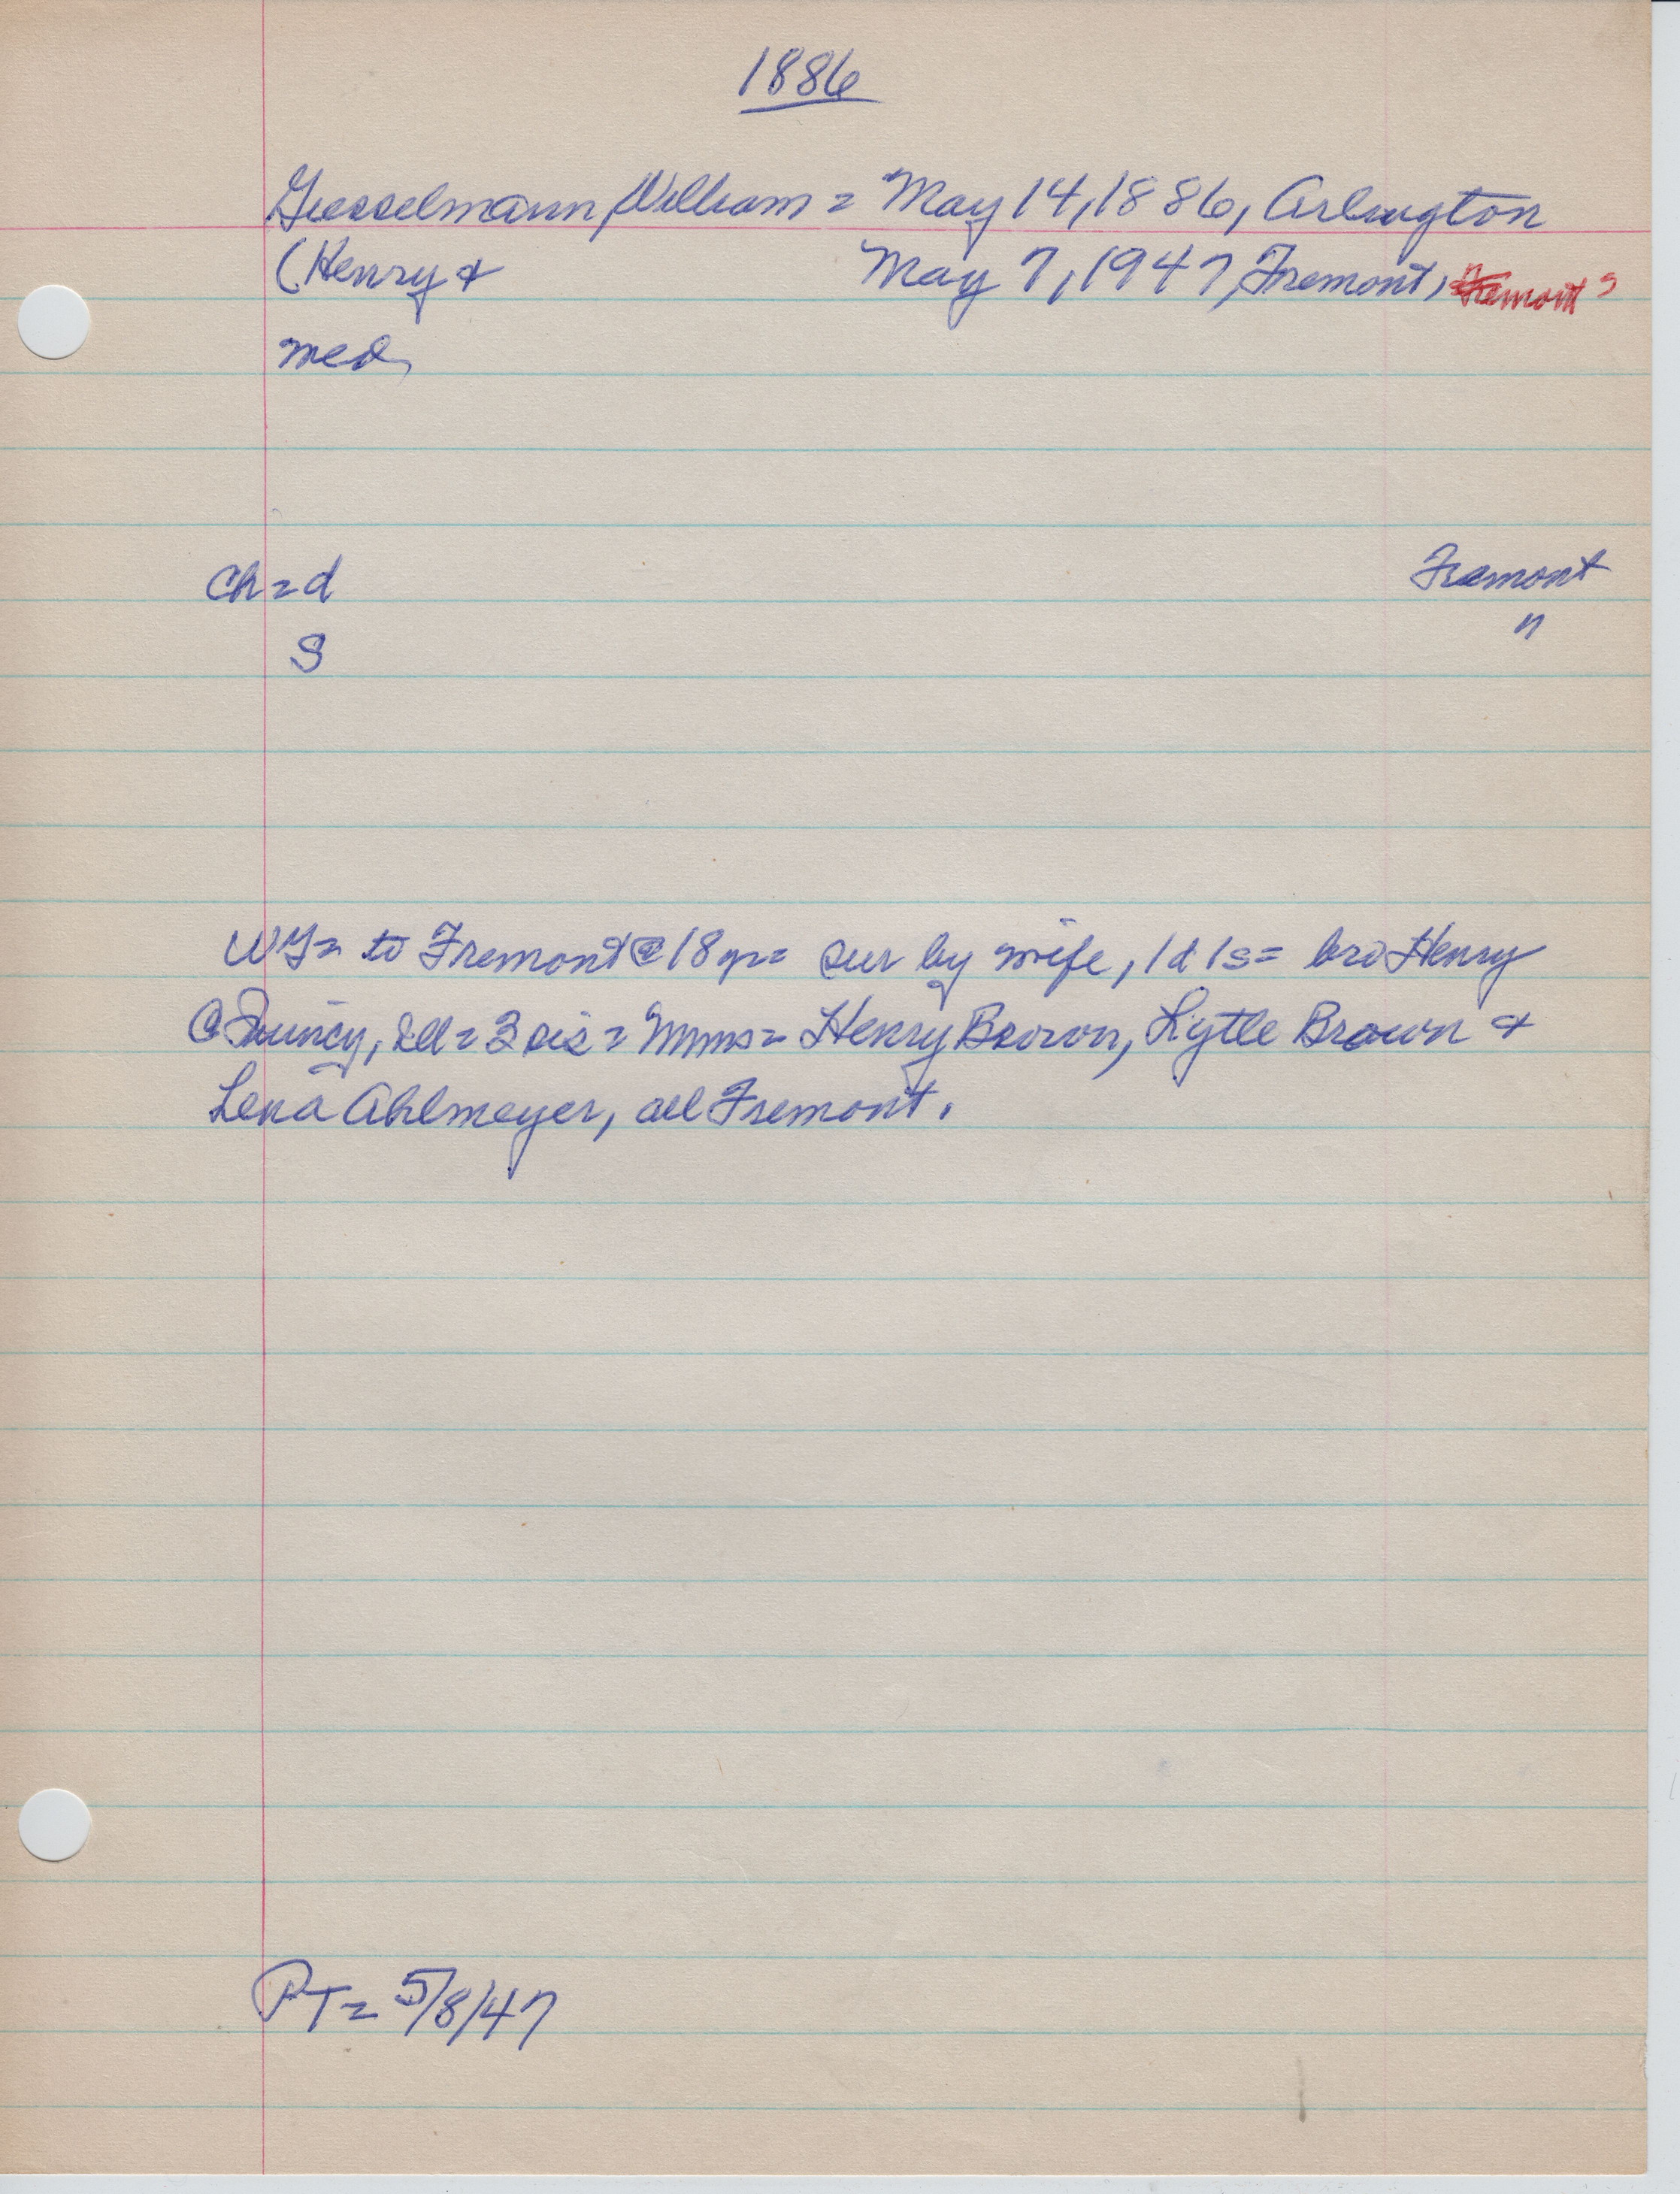 1886
Giesselmann, William = May 14, 1886, Arlington
(Henry & May 7, 1947, Fremont, Fremont
med,
Ch = d Fremont
S "
WG = to Fremont @ 18 yr = sur by wife, 1d 1s = bro Henry
@ Quincy, Ill = 3 sis = Mmms = Henry Brown, Lytle Brown &
Lena Ahlmeyer, all Fremont.
PT = 5/8/47